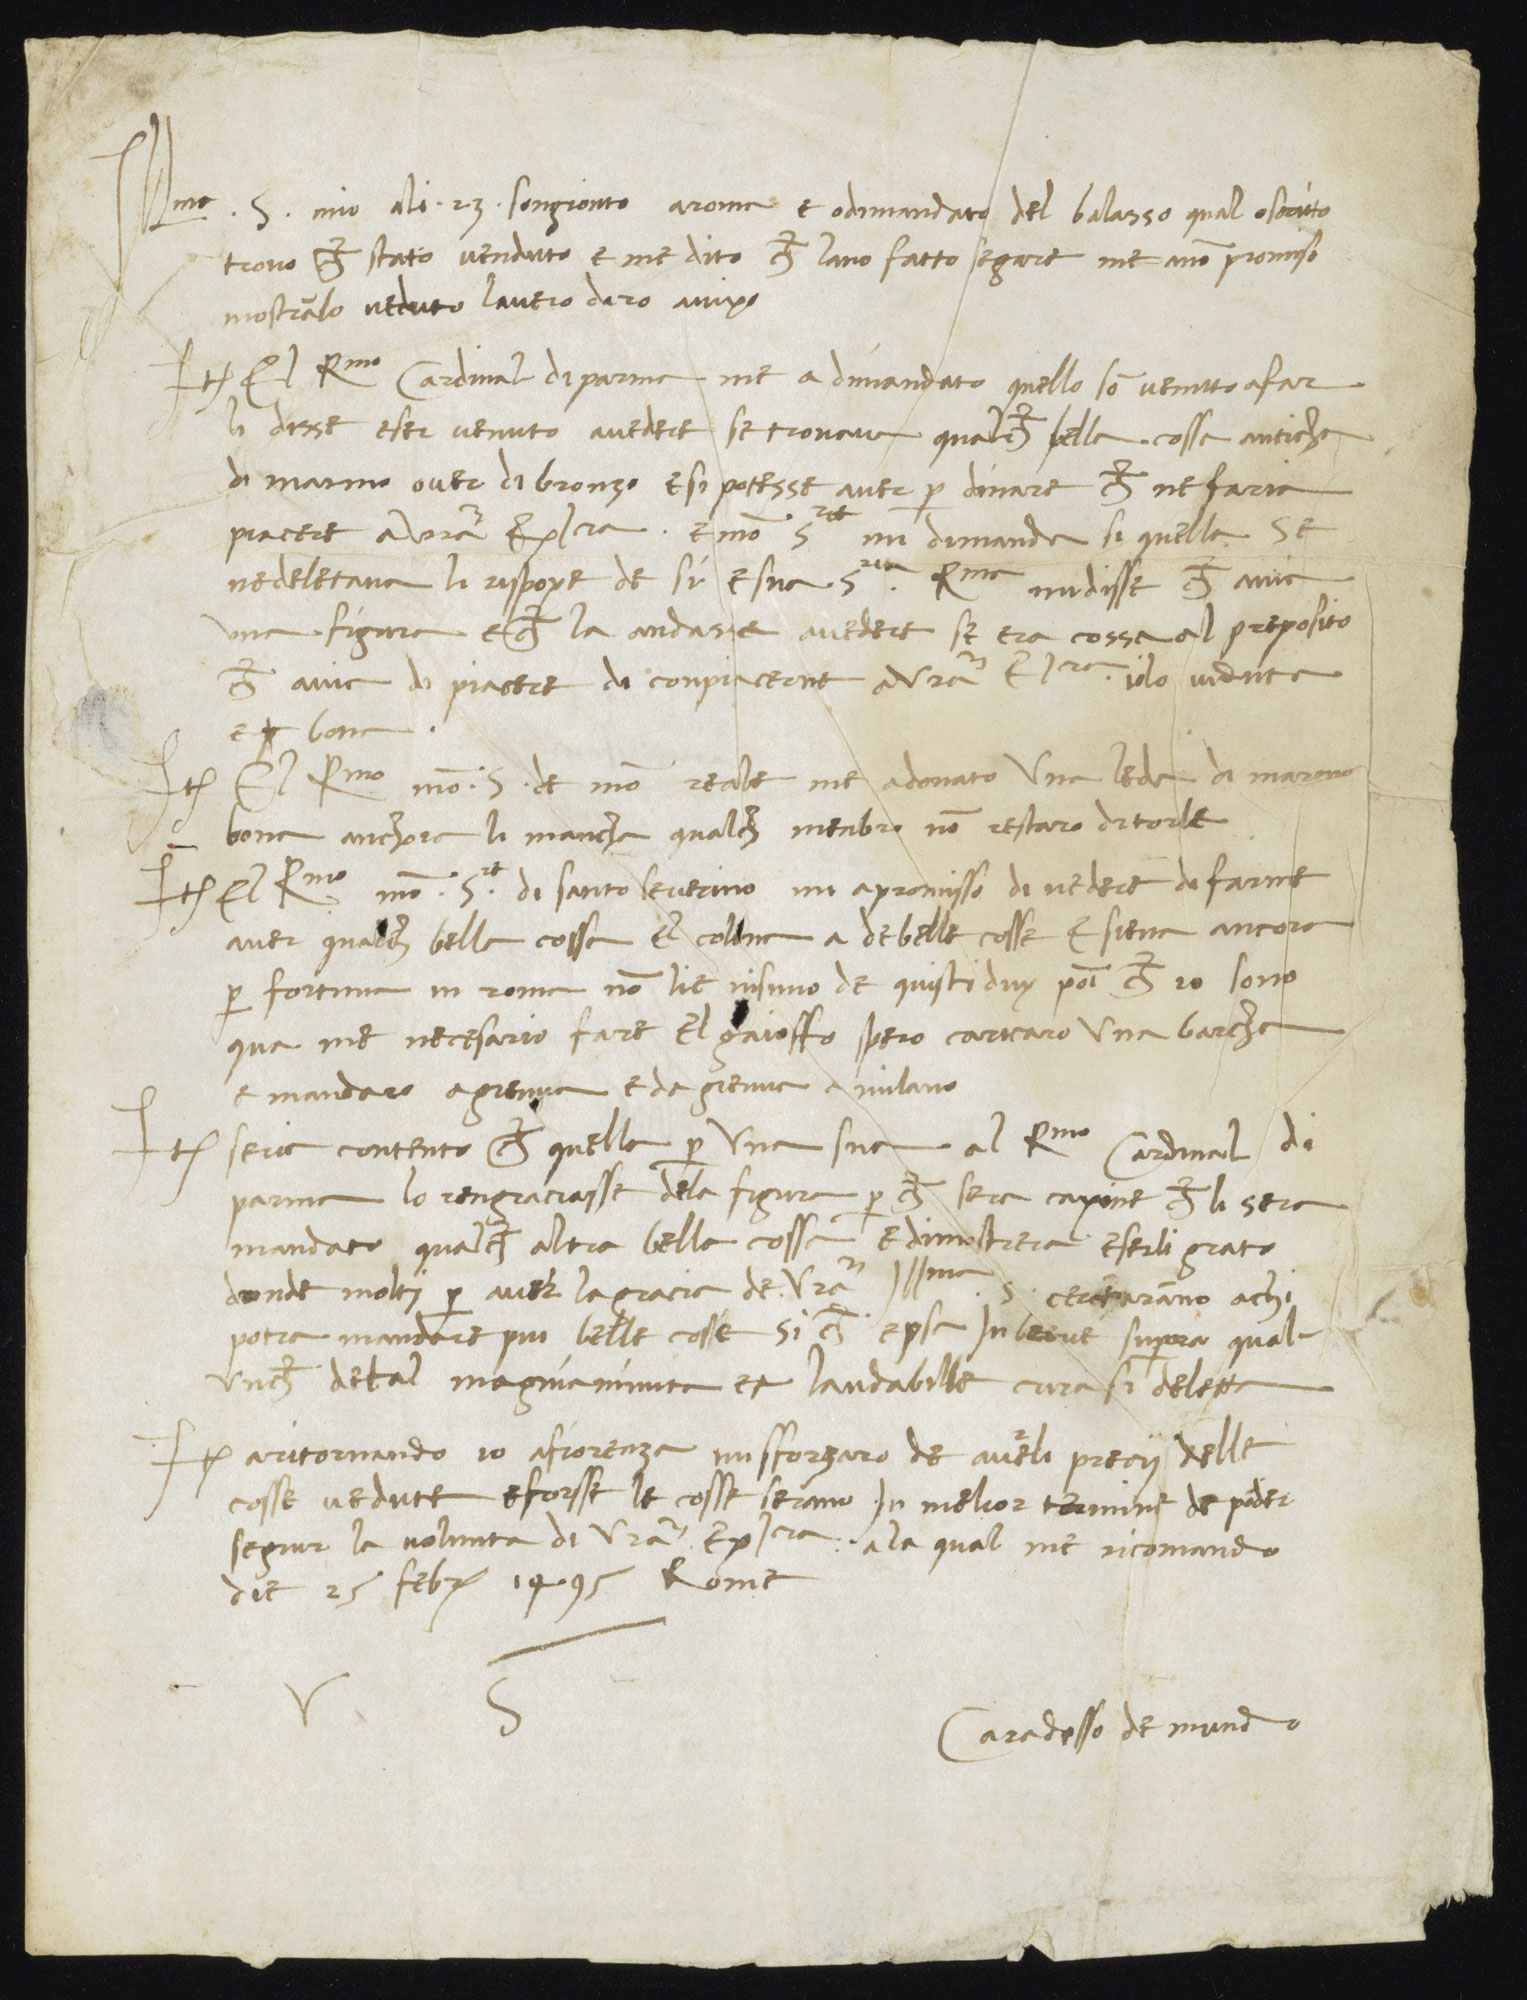 Illmo . S . mio ali . 23 . son gionto a roma e o dimandato del balasso qual o scritto
trovo ch̃ stato venduto e me dito ch̃ lano fatto segare me anõ promiso
mostralo veduto lavero daro avixo
Itꝫ El Rmo Cardinal di parma me a dimandato quello sõ venutto a far
li disse eser venuto a vedere se trovava qualch̃ bella cossa anticha
di marmo over di bronzo e si potesse aver p dinare ch̃ ne faria
piacere a Vrã Exlcia . e mõ Sre mi dimanda si quella se
ne deletava li rispoxe de si e sua Sria . Rma mi disse ch̃ avia
una figura e ch̃ la andasse a vedere se era cossa al preposito
ch̃ avia di piacere di conpiacerne a Vrã Elcia . io lo viduta
et bona .
Itꝫ El Rmo mõ . S . de mõ reale me a donato Una leda di marmo
bona anchora li mancha qualch̃ menbro nõ restaro di torle
Itꝫ El Rmo mõ . Sre . di santo severino mi a promisso di vedere di farme
aver qualch̃ bella cossa El colona a de belle cosse E siena ancora
p fortuna in roma nõ lie nisuno de quisti duy poi ch̃ io sono
qua me necesario fare El gaioffo spero caricaro Una barcha
e mandaro a gienua e da gienua a milano
Itꝫ seria contento ch̃ quella p Una sua al Rmo Cardinal di
parma lo rengraciasse dela figura p ch̃ sera caxone ch̃ li sera
mandato qualch̃ altra bella cossa e dimostrera eserli grato
donde moltj p aver la gracia de Vrã Illma . S . cercarãno a chi
potra mandare piu belle cosse si ch̃ epsa In breve supera qual
unch̃ de tal magnanimita et laudabille cura si deletta
Itꝫ a ritornando io a fiorenza mi sforzaro de averli precij delle
cosse vedute e forsse le cosse serano In melior termine de poder
seguir la volunta di Vrã Exlcia . a la qual me ricomando
die 25 febrꝫ 1495 Rome
V . S
Caradosso de mundo